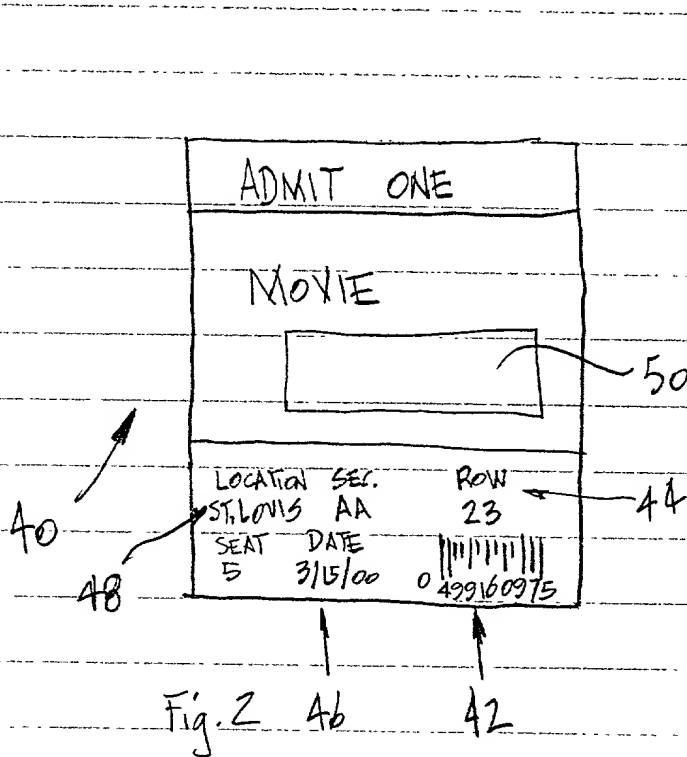 ADMIT ONE
MOVIE
50
LOCATION SEC. ROW
44
ST. LOUIS AA 23
40
SEAT DATE
5 3/15/00
0 499160975
48
Fig. 2 46 42